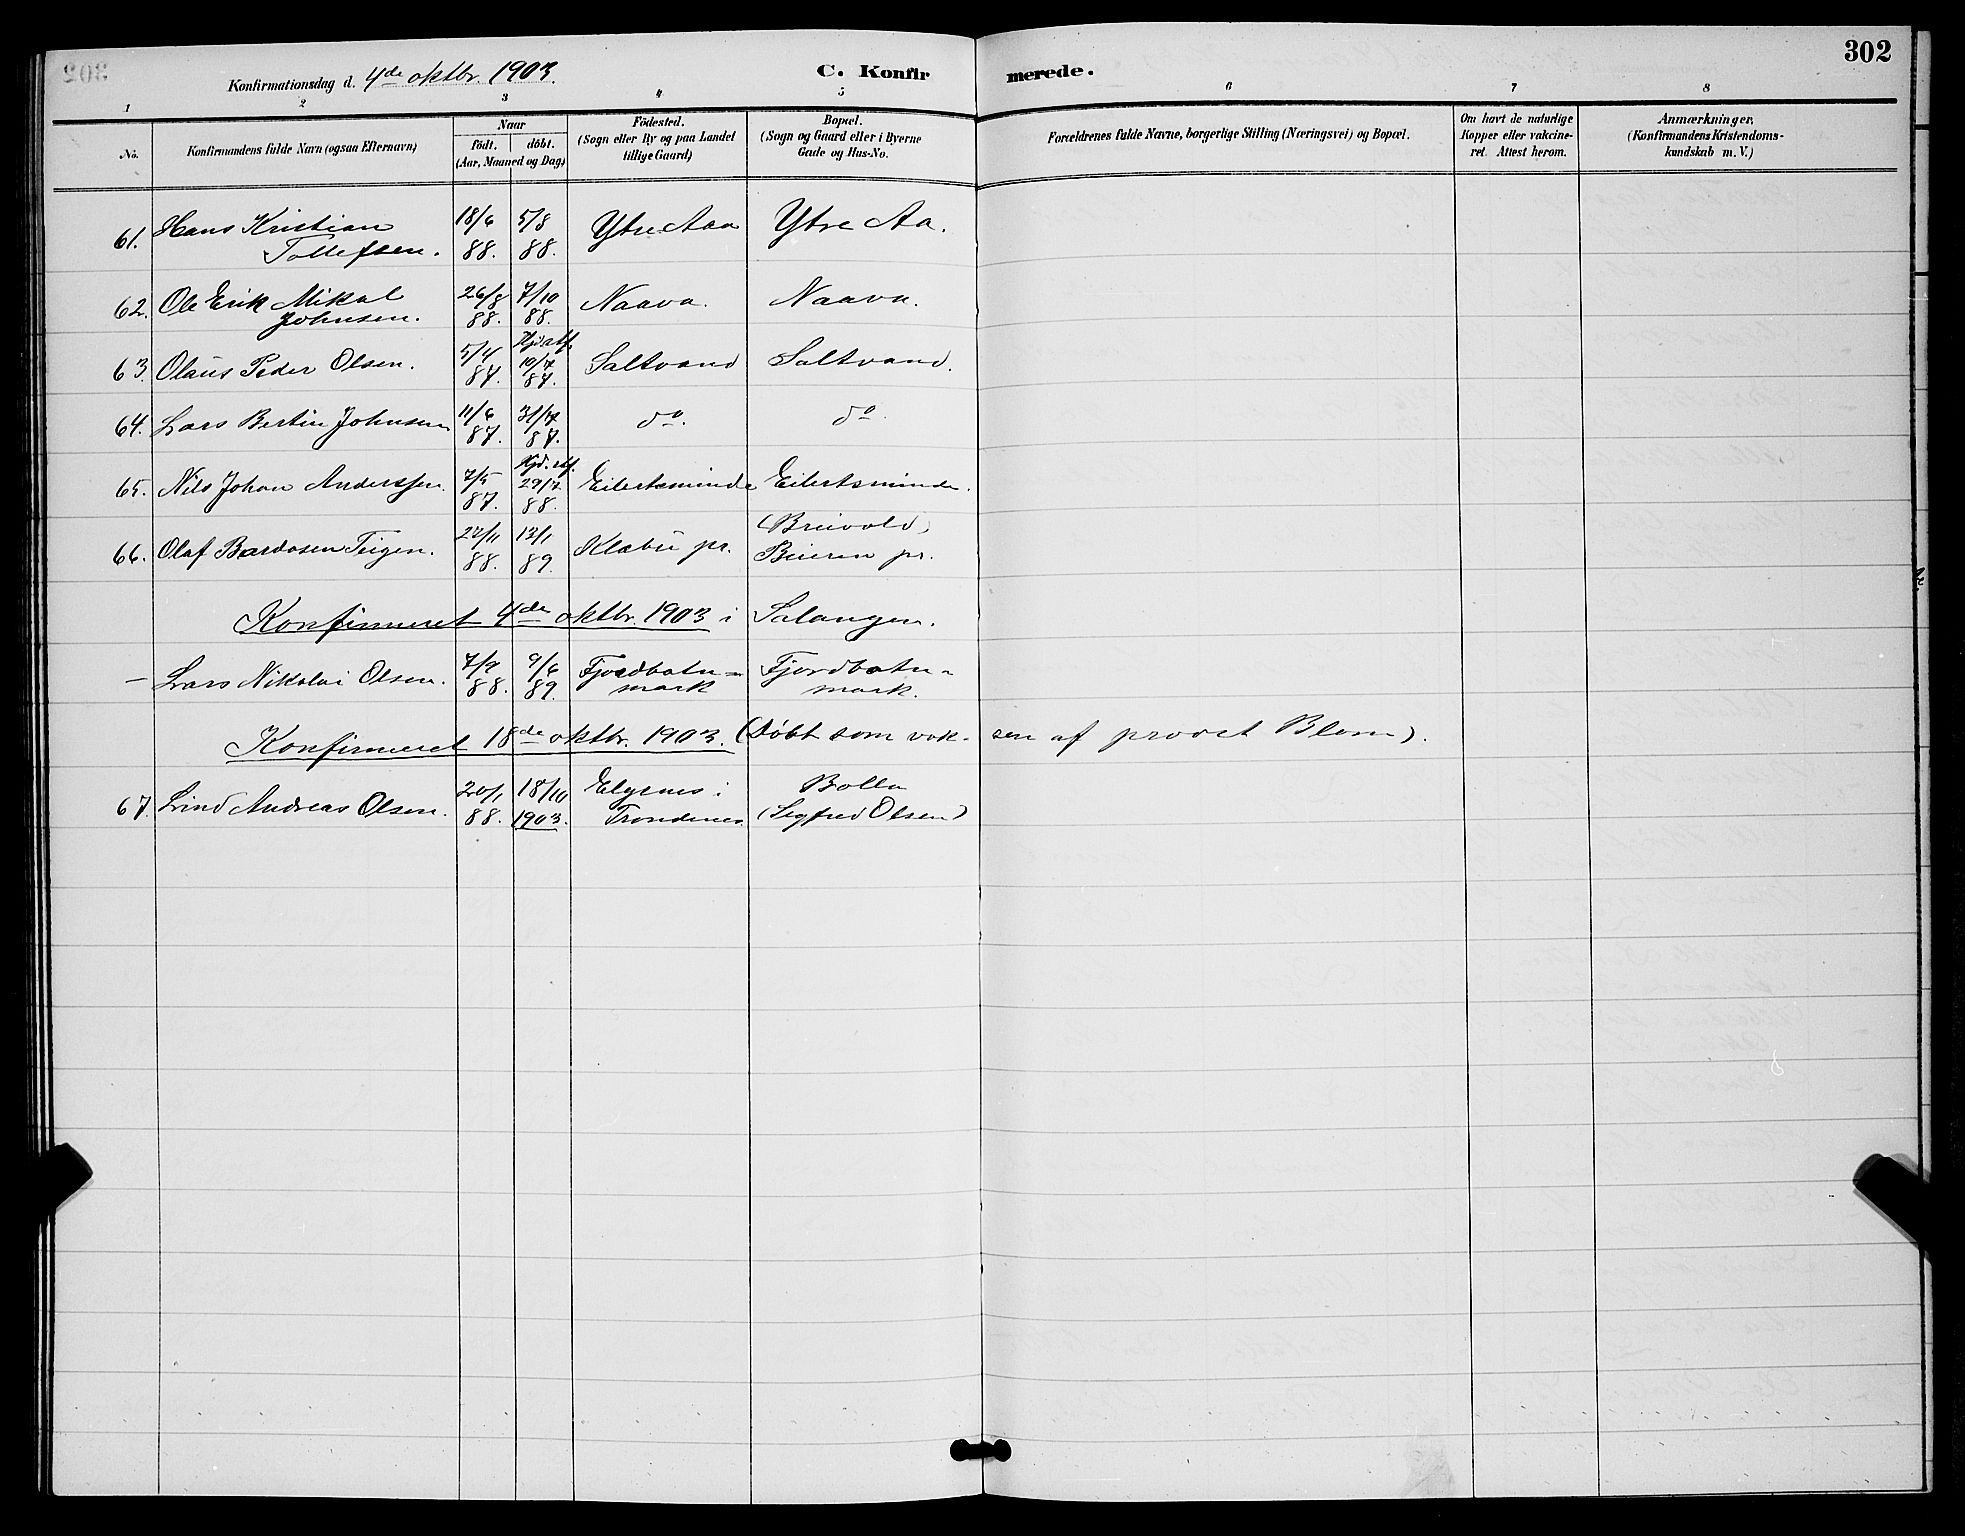 302
Konfirmationsdag d. 4de oktbr. 1903. C. Konfirmerede.
1 2 3 4 5 6 7 8
No. Konfirmandens fulde Navn (ogsaa Efternavn) Naar födt. döbt. (Aar, Maaned og Dag) Födested. (Sogn eller By og paa Landet tillige Gaard) Bopæl. (Sogn og Gaard eller i Byerne Gade og Hus-No. Forældrenes fulde Navne, borgerlige Stilling (Næringsvei) og Bopæl. Om havt de naturlige Kopper eller vakcineret. Attest herom. Anmærkninger, (Konfirmandens Kristendomskundskab m. V.)
61. Hans Kristian Tollefsen. 18/6 88. 5/8 88. Ytre Aaa Ytre Aa.
62. Ole Erik Mikal Johnsen. 26/8 88. 7/10 88. Naava. Naava.
63. Olaus Peder Olsen. 5/4 87. Hjd. stf. 10/7 87. Saltvand Saltvand.
64. Lars Bertin Johnsen 11/6 87. 31/7 87. do. do.
65. Nils Johan Anderssen. 7/5 87. Hjd. stf. 29/7 88. Eilertsminde Eilertsminde.
66. Olaf Bardosen Teigen. 22/11 88. 13/1 89. Klæbu pr. (Breivold) Beieren pr.
Konfirmeret 4de oktbr. 1903 i Salangen.
— Lars Nikolai Olsen. 7/9 88. 9/6 89. Fjordbotnmark Fjordbotnmark.
Konfirmeret 18de oktbr. 1903. (Döbt som voksen af provst Blom).
67. Lind Andreas Olsen. 20/1 88. 18/10 1903. Elgenes i Trondenes Bolla (Segfred Olsen)